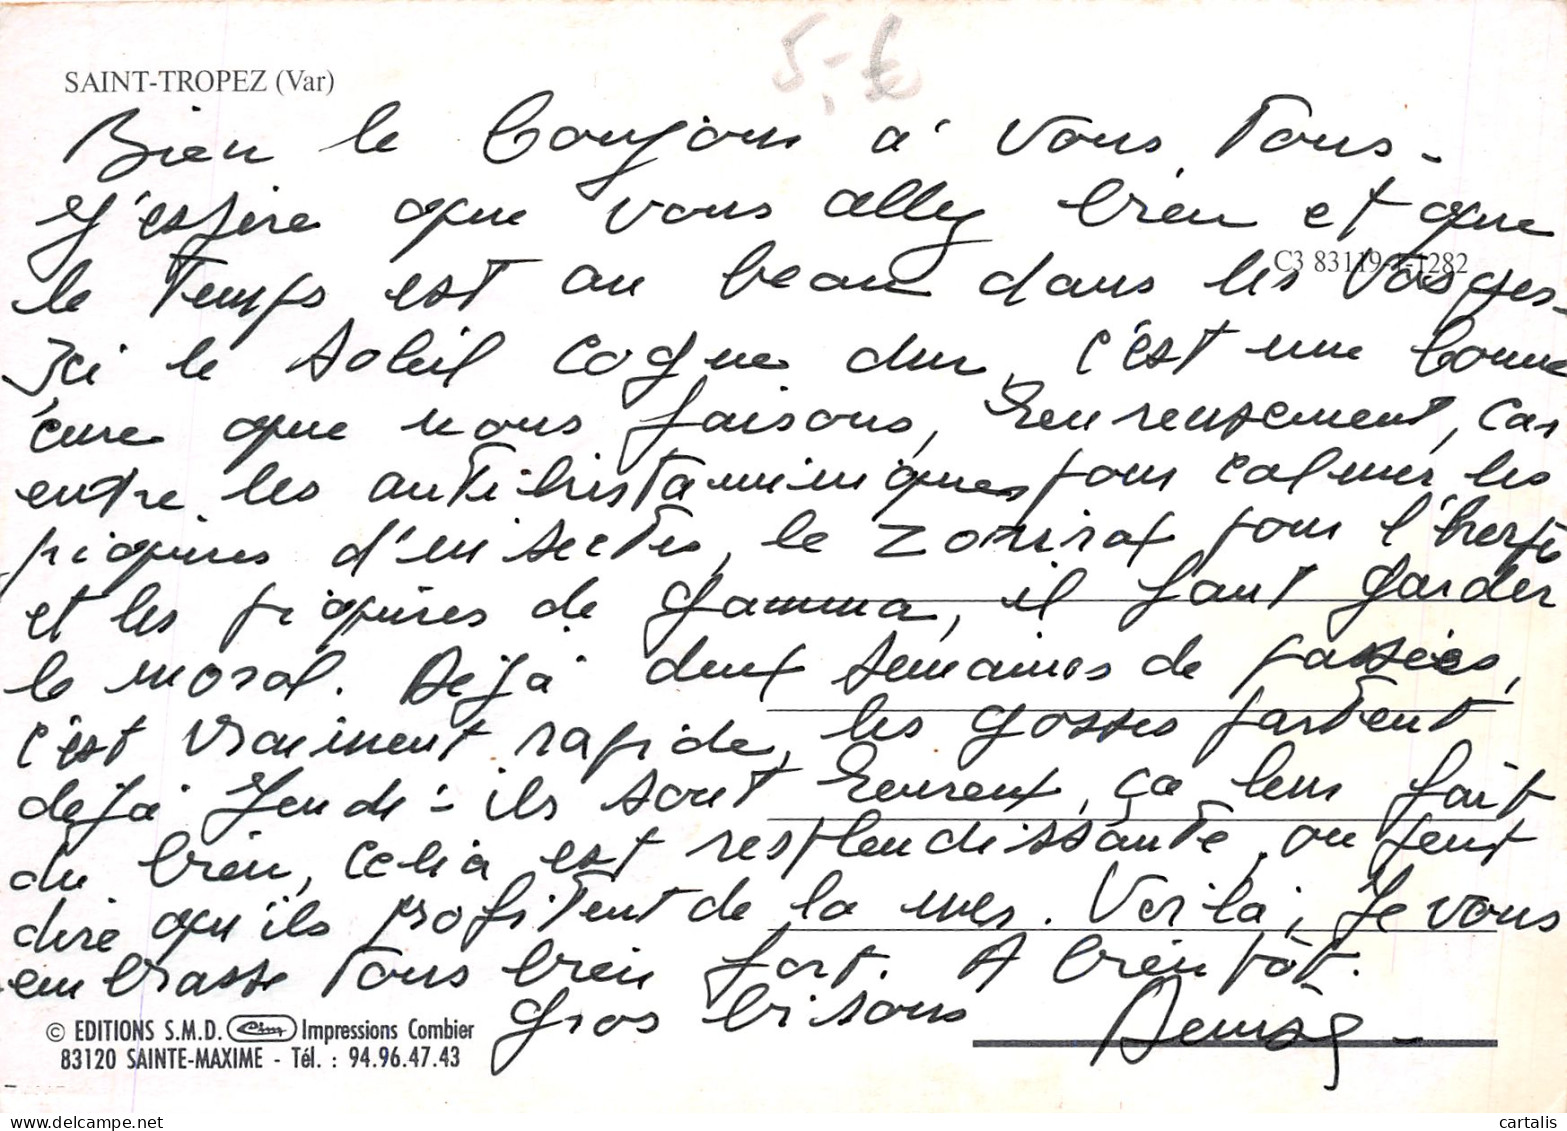 5,-€
SAINT-TROPEZ (Var)
Bien le bonjour à vous tous -
J'espère que vous allez bien et que
C3 83119-1-1282
le temps est au beau dans les Vosges -
Ici le soleil cogne dur, c'est une bonne
cure que nous faisons, heureusement, car
entre les antihistaminiques pour calmer les
piqûres d'insectes, le Zovirax pour l'herpès
et les piqûres de gamma, il faut garder
le moral. Déjà deux semaines de passées,
c'est vraiment rapide, les gosses partent
déjà Jeudi : ils sont heureux, ça leur fait
du bien, Celia est resplendissante, on peut
dire qu'ils profitent de la mer. Voilà, je vous
embrasse tous bien fort. A bientôt.
gros bisous
© EDITIONS S.M.D. Cim Impressions Combier
83120 SAINTE-MAXIME - Tél. : 94.96.47.43
cartalis